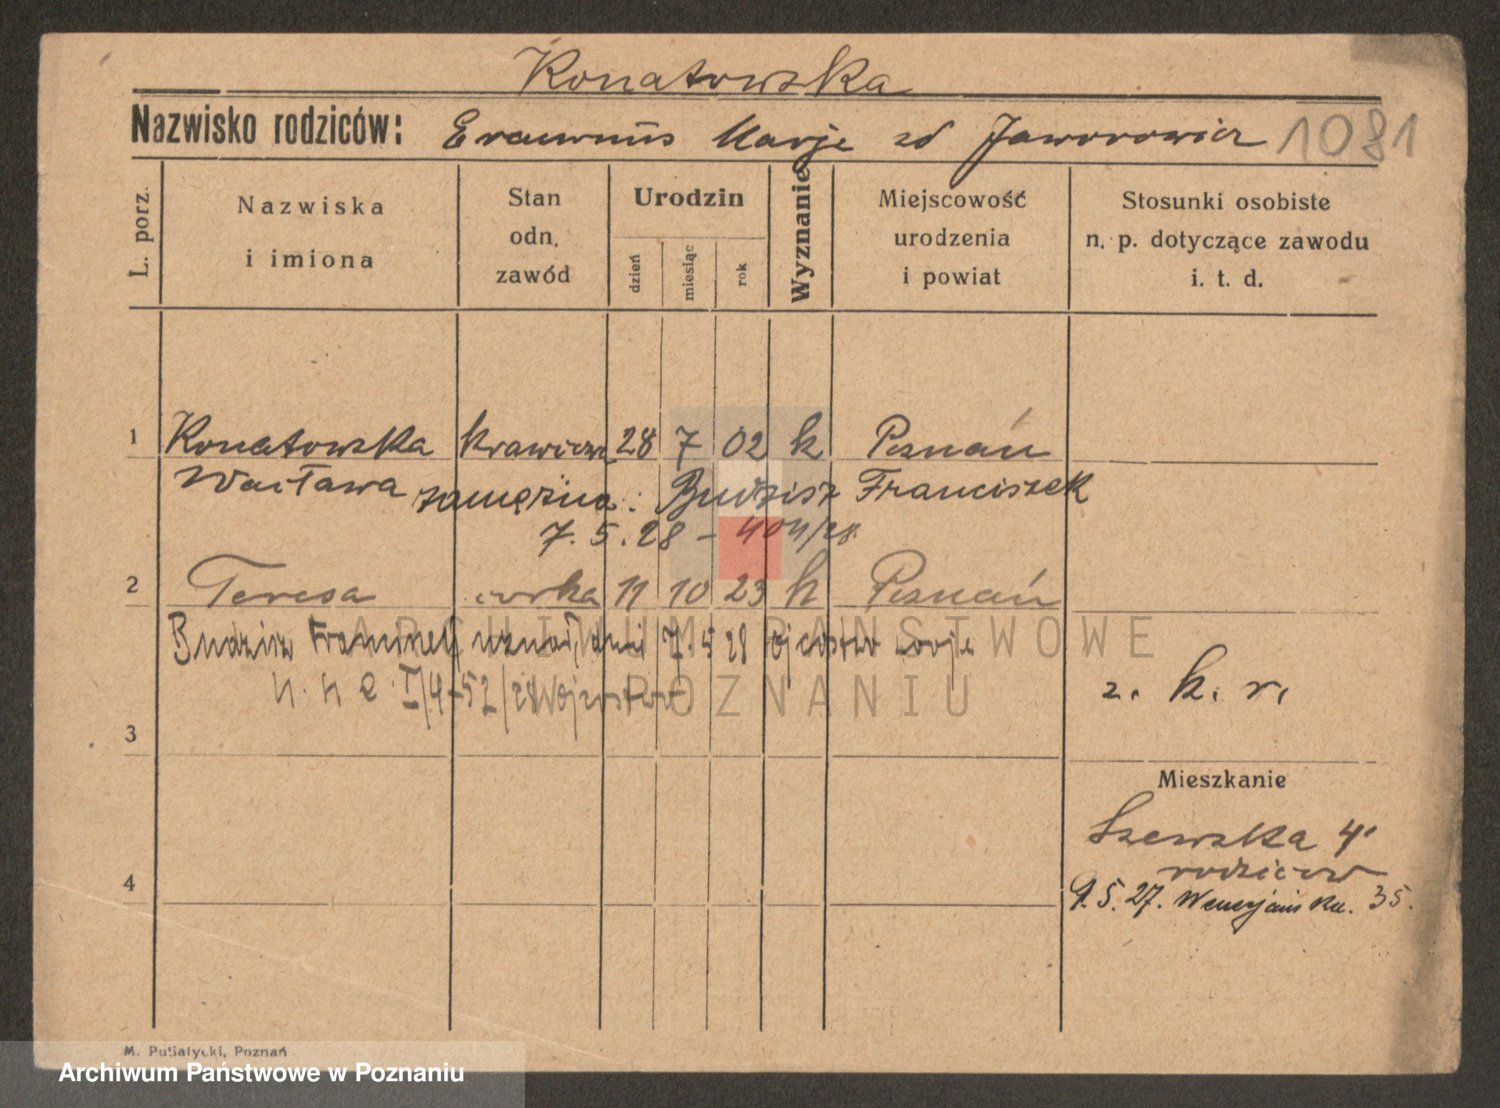 Konatowska
Nazwisko rodziców: Erazmus Marje zd Jaworowicz 1081
L. porz.
Nazwiska
i imiona
Stan
odn.
zawód
Urodzin
dzień
miesiąc
rok
Wyznanie
Miejscowość
urodzenia
i powiat
Stosunki osobiste
n. p. dotyczące zawodu
i. t. d.
1 Konatowska 28 7 02 k Poznań
Wacława zamężna: Budzisz Franciszek
7.5.28 - 404/28
2 Teresa córka 11 10 23 k Poznań
ARCHIWUM PAŃSTWOWE
Budzisz uznał 7.5 28 ojcostwo
W POZNANIU
z. k. r.
3
Mieszkanie
Szewska 4
rodziców
4
9.5.27. 35.
M. Putiatycki, Poznań
Archiwum Państwowe w Poznaniu